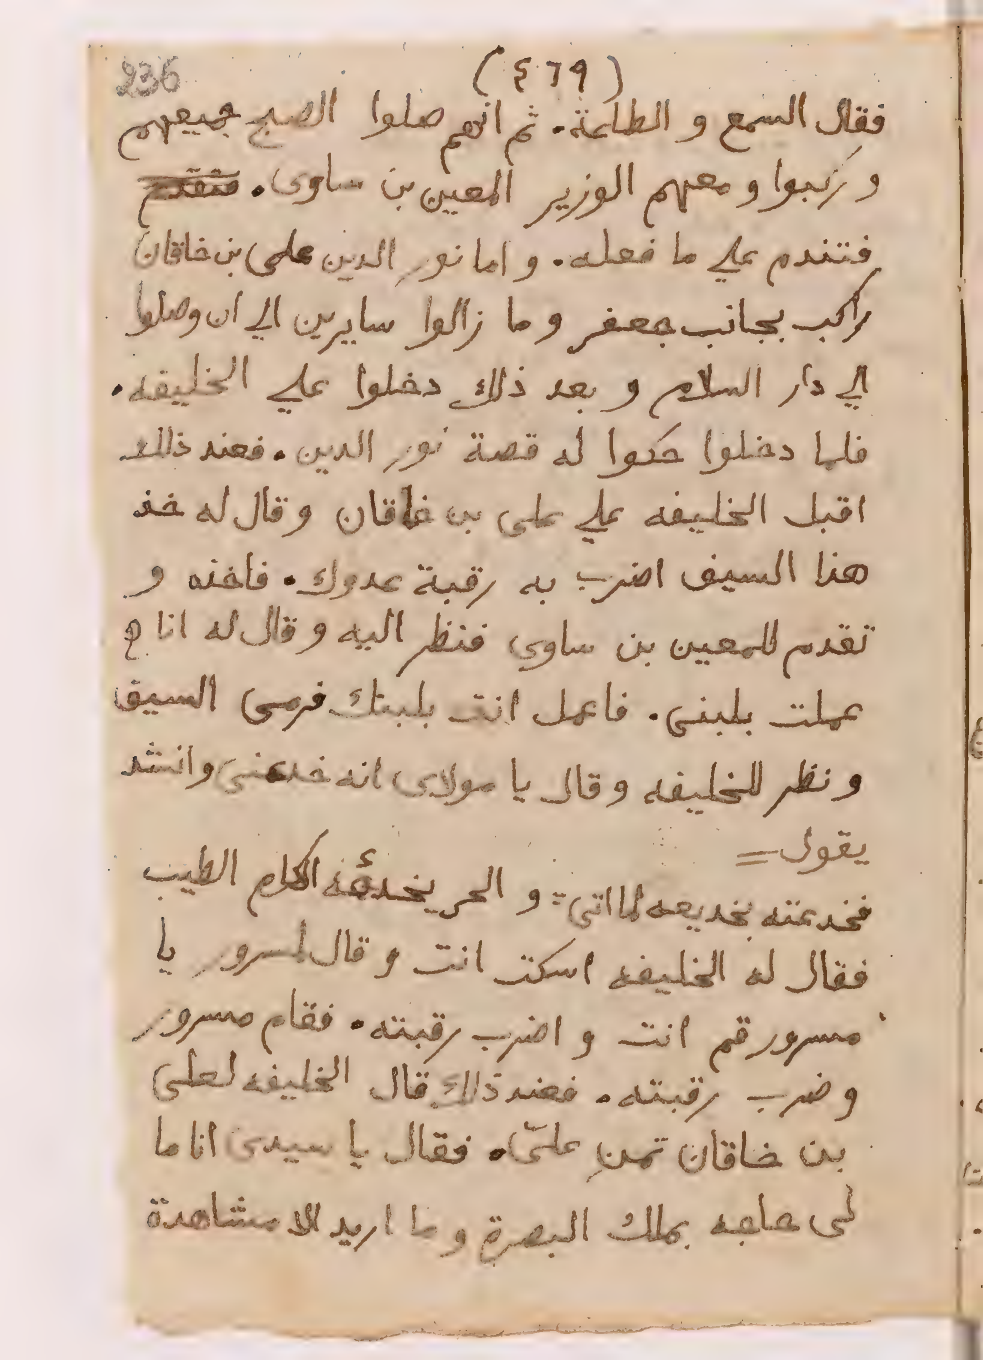 236
(٤٦٩)
فقال السمع و الطاعة. ثم انهم صلوا الصبح جميعهم
و ركبوا و معهم الوزير المعين بن ساوى.
فتندم على ما فعله. و اما نور الدين على بن خاقان
راكب بجانب جعفر و ما زالوا سايرين الى ان وصلوا
الى دار السلام و بعد ذلك دخلوا على الخليفه.
فلما دخلوا حكوا له قصة نور الدين. فعند ذلك
اقبل الخليفه على على بن خاقان و قال له خذ
هذا السيف اضرب به رقبة عدوك. فاخذه و
تقدم للمعين بن ساوى فنظر اليه و قال له انا
عملت بلبنى. فاعمل انت بلبنك فرمى السيف
و نظر للخليفه و قال يا مولاى انه خدعنى وانشد
يقول =
فخدعته بخديعه لما اتى = و الحر يخدعه الكلام الطيب
فقال له الخليفه اسكت انت و قال لمسرور يا
مسرور قم انت و اضرب رقبته. فقام مسرور
و ضرب رقبته. فعند ذلك قال الخليفه لعلى
بن خاقان تمن علىّ. فقال يا سيدى انا ما
لى حاجه بملك البصرة و ما اريد الا مشاهدة